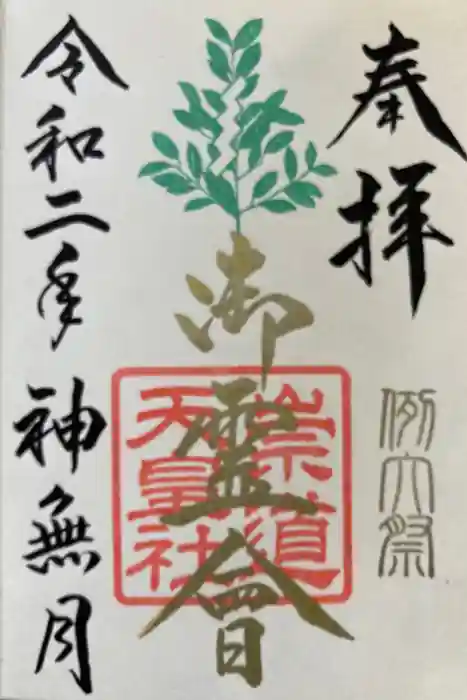 奉拝
例大祭
御霊會
崇道
天皇社
令和二年
神無月